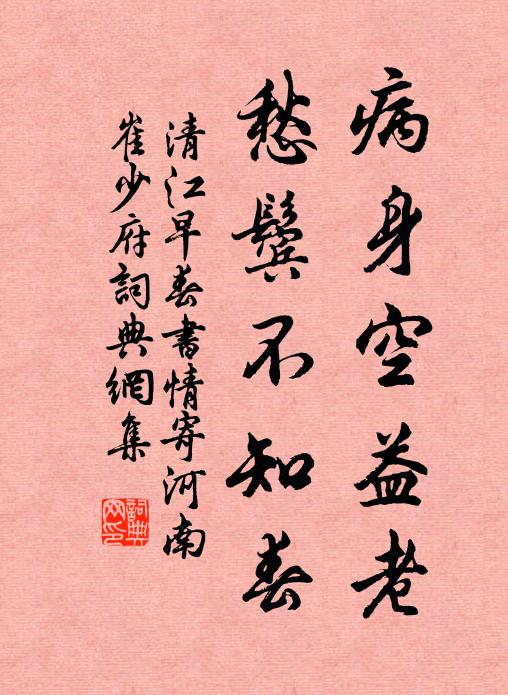 病身空益老
愁鬢不知春
清江早春書情寄河南
崔少府詞典網集
詞典
网印